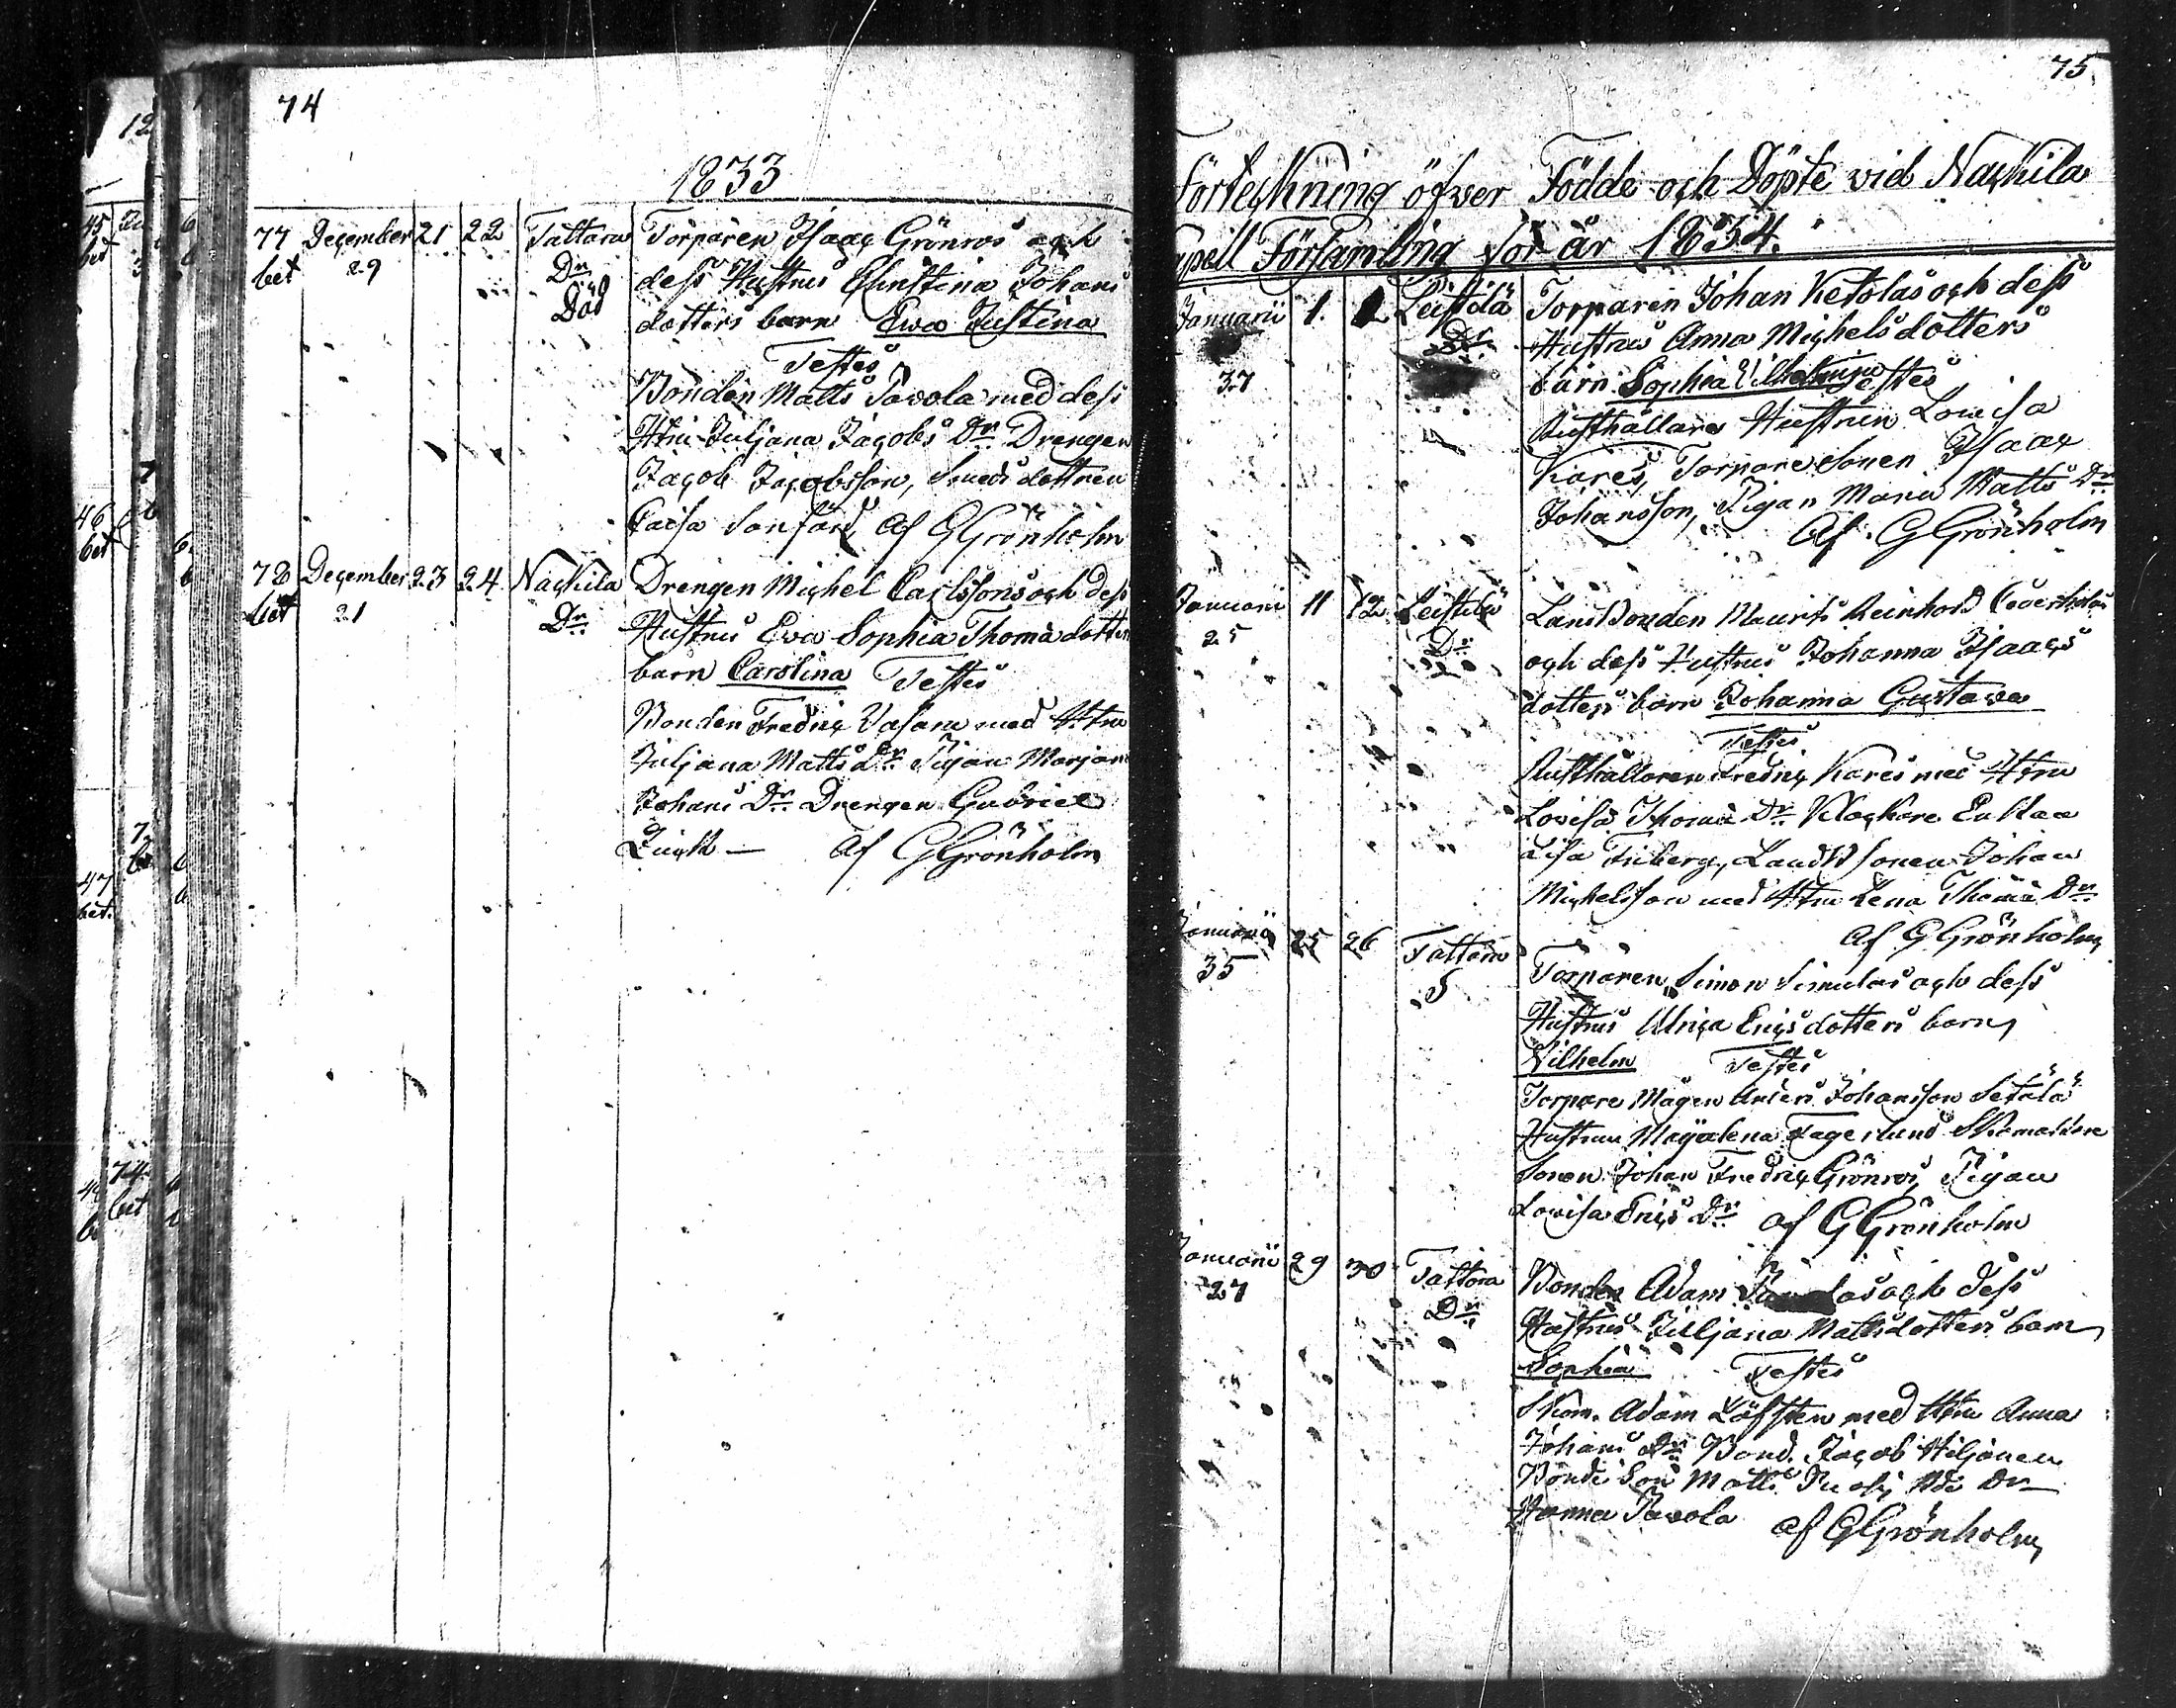 74
1833
77 December 21 22 Tattara Torparen Isaac Grönros och
bet 29 Dr dess Hustrus Christina Johans
Död dotters barn Ewa Justina
Testes
Bonden Matts Pavola med dess
Hru Juljana Jacobs Dr Drengen
Jacob Jacobsson, Smeds dottren
Caisa Sanfärd Af GGrönholm
78 December 23 24 Nackila Drengen Michel Carlssons och dess
bet 21 Dr Hustrus Eva Sophia Thomä dotters
barn Carolina Testes
Bonden Fredric Vasara med Hru
Juljana Matts Dr Pigan Marjana
Johans Dr Drengen Gabriel
af GGrönholm
75
Förteckning öfver Födde och Döpte vid Nackila
Capell Församling för år 1834.
Januarii 1. 2 Leistilä Torparen Johan Ketolas och dess
Dr Hustrus Anna Michelsdotters
37 barn Sophia Vilhelmina Testes
Rusthållare Hustrun Lowisa
Kares, Torpare Sonen Isaac
Johansson, Pigan Maria Matts Dr
Af. GGrönholm
Januarii 11 12 Leistilä Landbonden Maurits Reinhold
25 Dr och dess Hustrus Johanna Isaacs
dotters barn Johanna Gustava
Testes
Rusthållaren Fredric Kares med Hru
Lovisa Thomä Dr Klockare Enkan
Lisa Friberg, Landb Sonen Johan
Michelsson med Hru Lena Thomä Dr
af GGrönholm
Januarii 25 26 Tattara
35 S Torparen Simon Simulas och dess
Hustrus Ulrica Ericsdotters barn
Vilhelm Testes
Torpare Mågen Anders Johansson Setälä
Hustrun Magdalena Fagerlund Skomakare
Sonen Johan Fredric Grönros, Pigan
Lovisa Erics Dr af GGrönholm
Januarii 29 30 Tattara Bonden Adam och dess
27 Dr Hustrus Juljana Mattsdotters barn
Sophia Testes
Skom. Adam Löfsten med Hru Anna
Johans Dr Bond. Jacob Hiljanen
Bonde Son Matts Dr
Hanna Pavola af GGrönholm